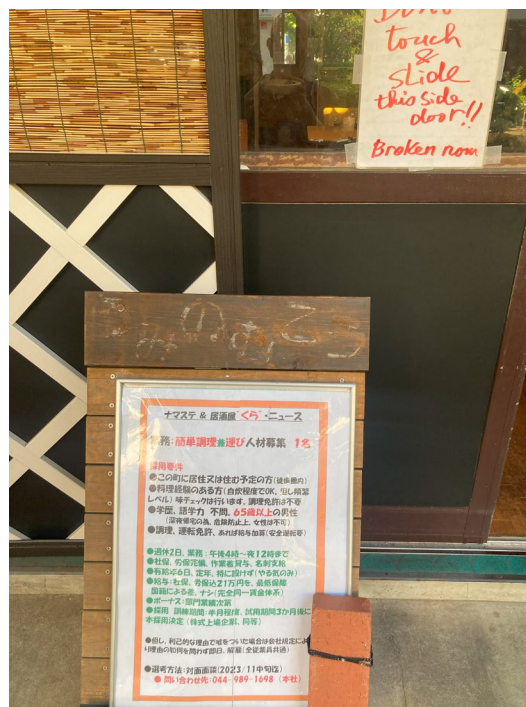 touch
&
slide
this side
door!!
Broken now
ナマステ & 居酒屋 "くら"・ニュース
業務:簡単調理兼運び人材募集 1名
採用要件
●この町に居住又は住む予定の方(徒歩圏内)
●料理経験のある方(自炊程度でOK、但し頻繁
レベル)味チェックは行います、調理免許は不要
●学歴、語学力 不問、65歳以上の男性
(深夜帰宅の為、危険防止上、女性は不可)
●調理、運転免許、あれば給与加算(安全運転要)
●週休2日、業務:午後4時〜夜12時まで
●社保、労保完備、作業着貸与、名刺支給
●有給年6日、定年、特に設けず(やる気のみ)
●給与:社保、労保込21万円を、最低保障
国籍による差、ナシ(完全同一賃金体系)
●ボーナス:部門業績次第
●採用 訓練期間:半月程度、試用期間3か月後に
本採用決定(株式上場企業、同等)
●但し、利己的な理由で嘘をついた場合は会社規定によ
り理由の如何を問わず即日、解雇(全従業員共通)
●選考方法:対面面談(2023/11中旬迄)
●問い合わせ先:044-989-1698(本社)